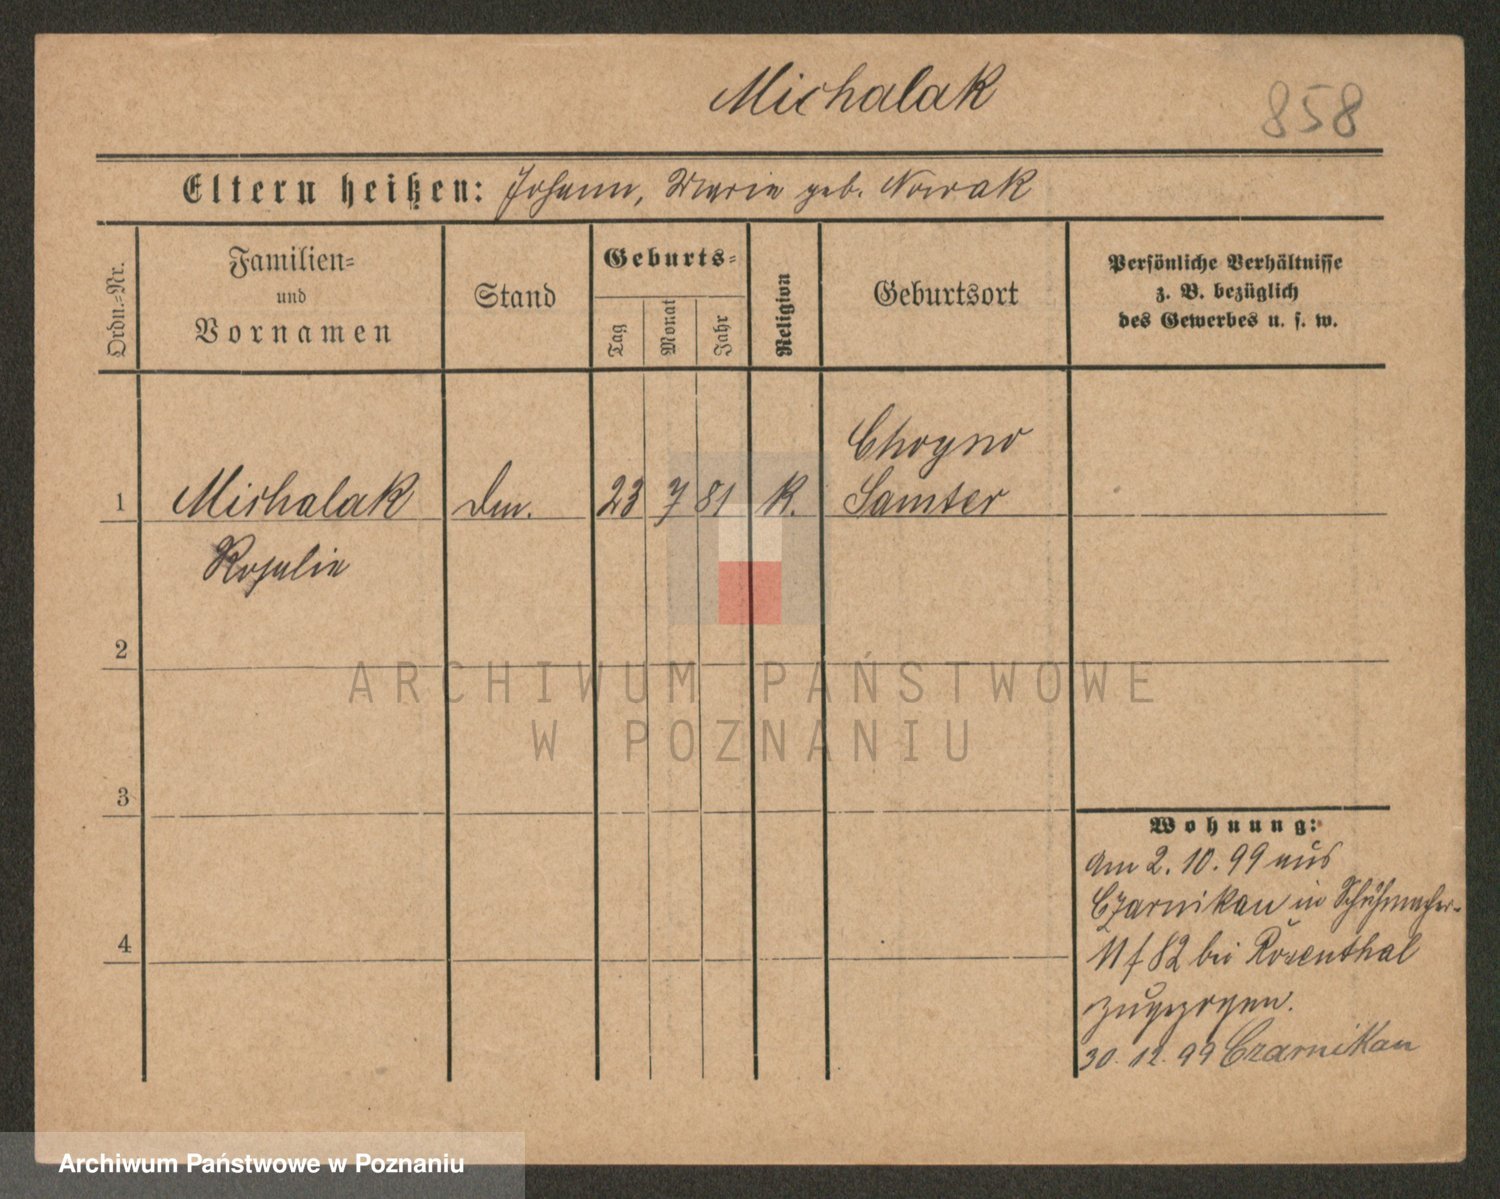 Michalak
858
Eltern heißen: Johann, Marie geb. Nowak
Ordn.-Nr.
Familien-
und
Vornamen
Stand
Geburts-
Tag
Monat
Jahr
Religion
Geburtsort
Persönliche Verhältnisse
z. B. bezüglich
des Gewerbes u. s. w.
1 Michalak 23 7 81 K. Choyno
Samter
Rosalie
2
3
4
Wohnung:
am 2. 10. 99 aus
Czarnikau in Schuhmacher-
bei Rosenthal
zugezogen.
30. 12. 99 Czarnikau
ARCHIWUM PAŃSTWOWE
W POZNANIU
Archiwum Państwowe w Poznaniu